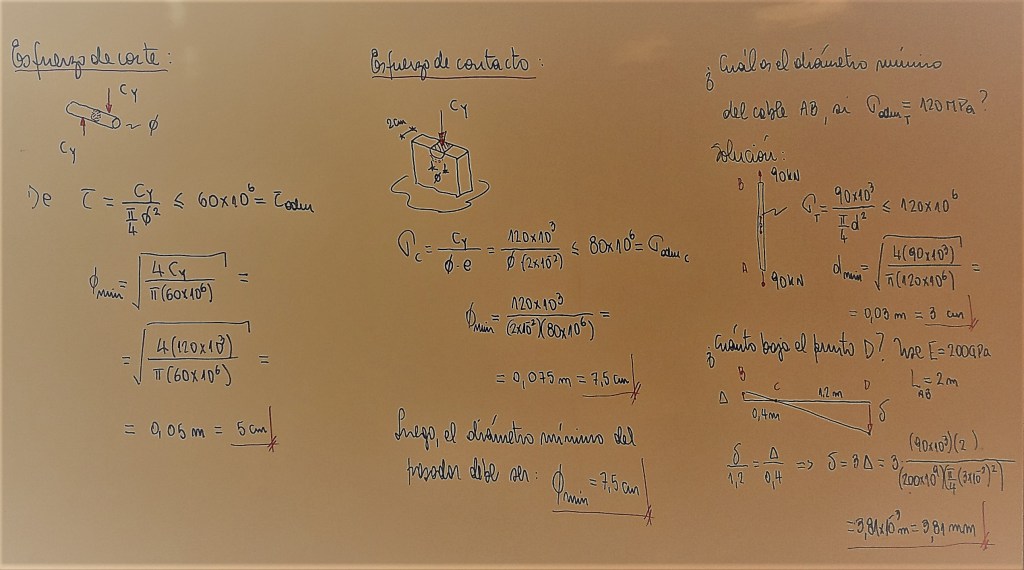 Esfuerzo de corte:
Cy
Cy
ϕ
De τ = Cy / (π/4 ϕ²) ≤ 60×10⁶ = τadm
ϕmin = √(4 Cy / π(60×10⁶)) =
= √(4(120×10³) / π(60×10⁶)) =
= 0,05 m = 5 cm
Esfuerzo de contacto:
Cy
2cm
ϕ
σc = Cy / (ϕ·e) = 120×10³ / (ϕ·(2×10⁻²)) ≤ 80×10⁶ = σadm c
ϕmin = 120×10³ / ((2×10⁻²)(80×10⁶)) =
= 0,075 m = 7,5 cm
Luego, el diámetro mínimo del
pasador debe ser: ϕmin = 7,5 cm
¿Cuál es el diámetro mínimo
del cable AB, si σadm T = 120 MPa?
Solución:
B 90kN
σT = 90×10³ / (π/4 d²) ≤ 120×10⁶
A 90kN
dmin = √(4(90×10³) / π(120×10⁶)) =
= 0,03 m = 3 cm
¿Cuánto baja el punto D? Use E = 200GPa
LAB = 2m
B C 1.2m D
Δ 0,4m δ
δ/1,2 = Δ/0,4 => δ = 3Δ = 3 (90×10³)(2) / ((200×10⁹)(π/4 (3×10⁻²)²))
= 3,81×10⁻³ m = 3,81 mm